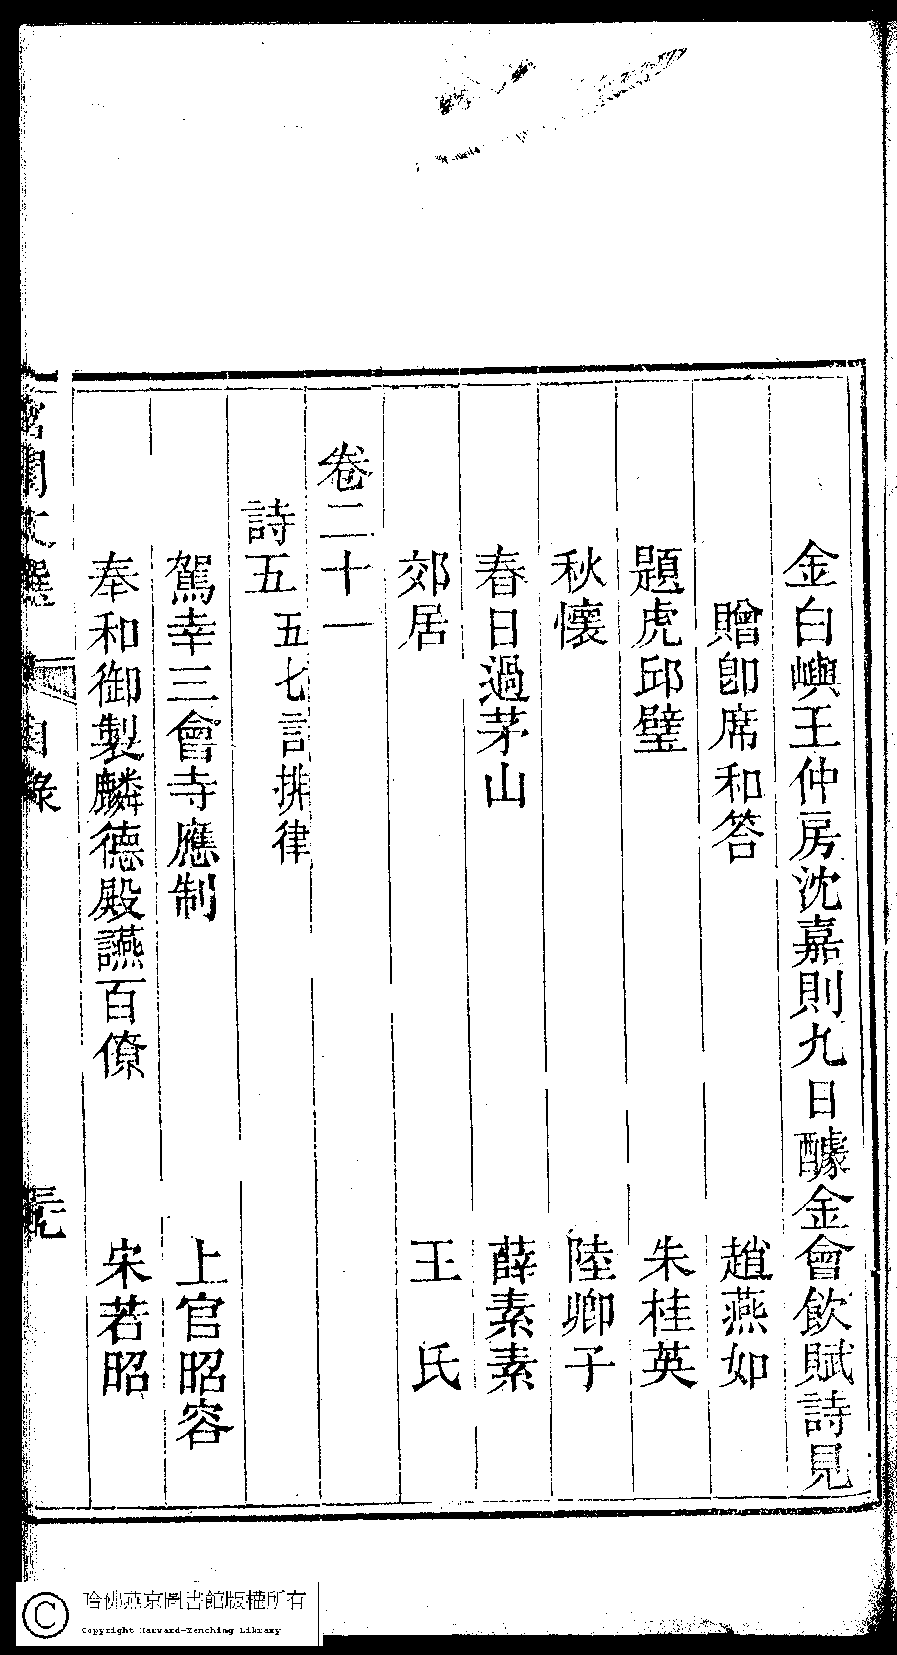 金白嶼王仲房沈嘉則九日醵金會飲賦詩見
贈卽席和答 趙燕如
題虎邱壁 朱桂英
秋懷 陸卿子
春日過茅山 薛素素
郊居 王氏
卷二十一
詩五 五七言排律
駕幸三會寺應制 上官昭容
奉和御製麟德殿讌百僚 宋若昭
宮閨文選 目錄
哈佛燕京圖書館版權所有
Copyright Harvard-Yenching Library